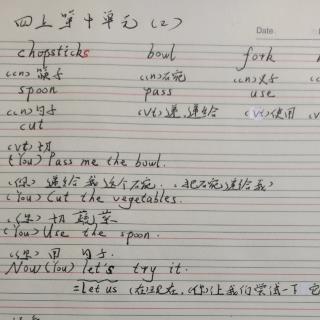 四上第十单元(2)
Date.
chopsticks bowl fork
(cn) 筷子 (n) 碗 (n) 叉子
spoon pass use
(cn) 勺子 (vt) 递,递给 (vt) 使用 (vt)
cut
(vt) 切
(You) Pass me the bowl.
(你) 递给我这个碗. (把碗递给我)
(You) Cut the vegetables.
(你) 切 蔬菜
(You) Use the spoon.
(你) 用 勺子.
Now (You) let's try it.
=let us (在)现在, 你让我们尝试一下 它